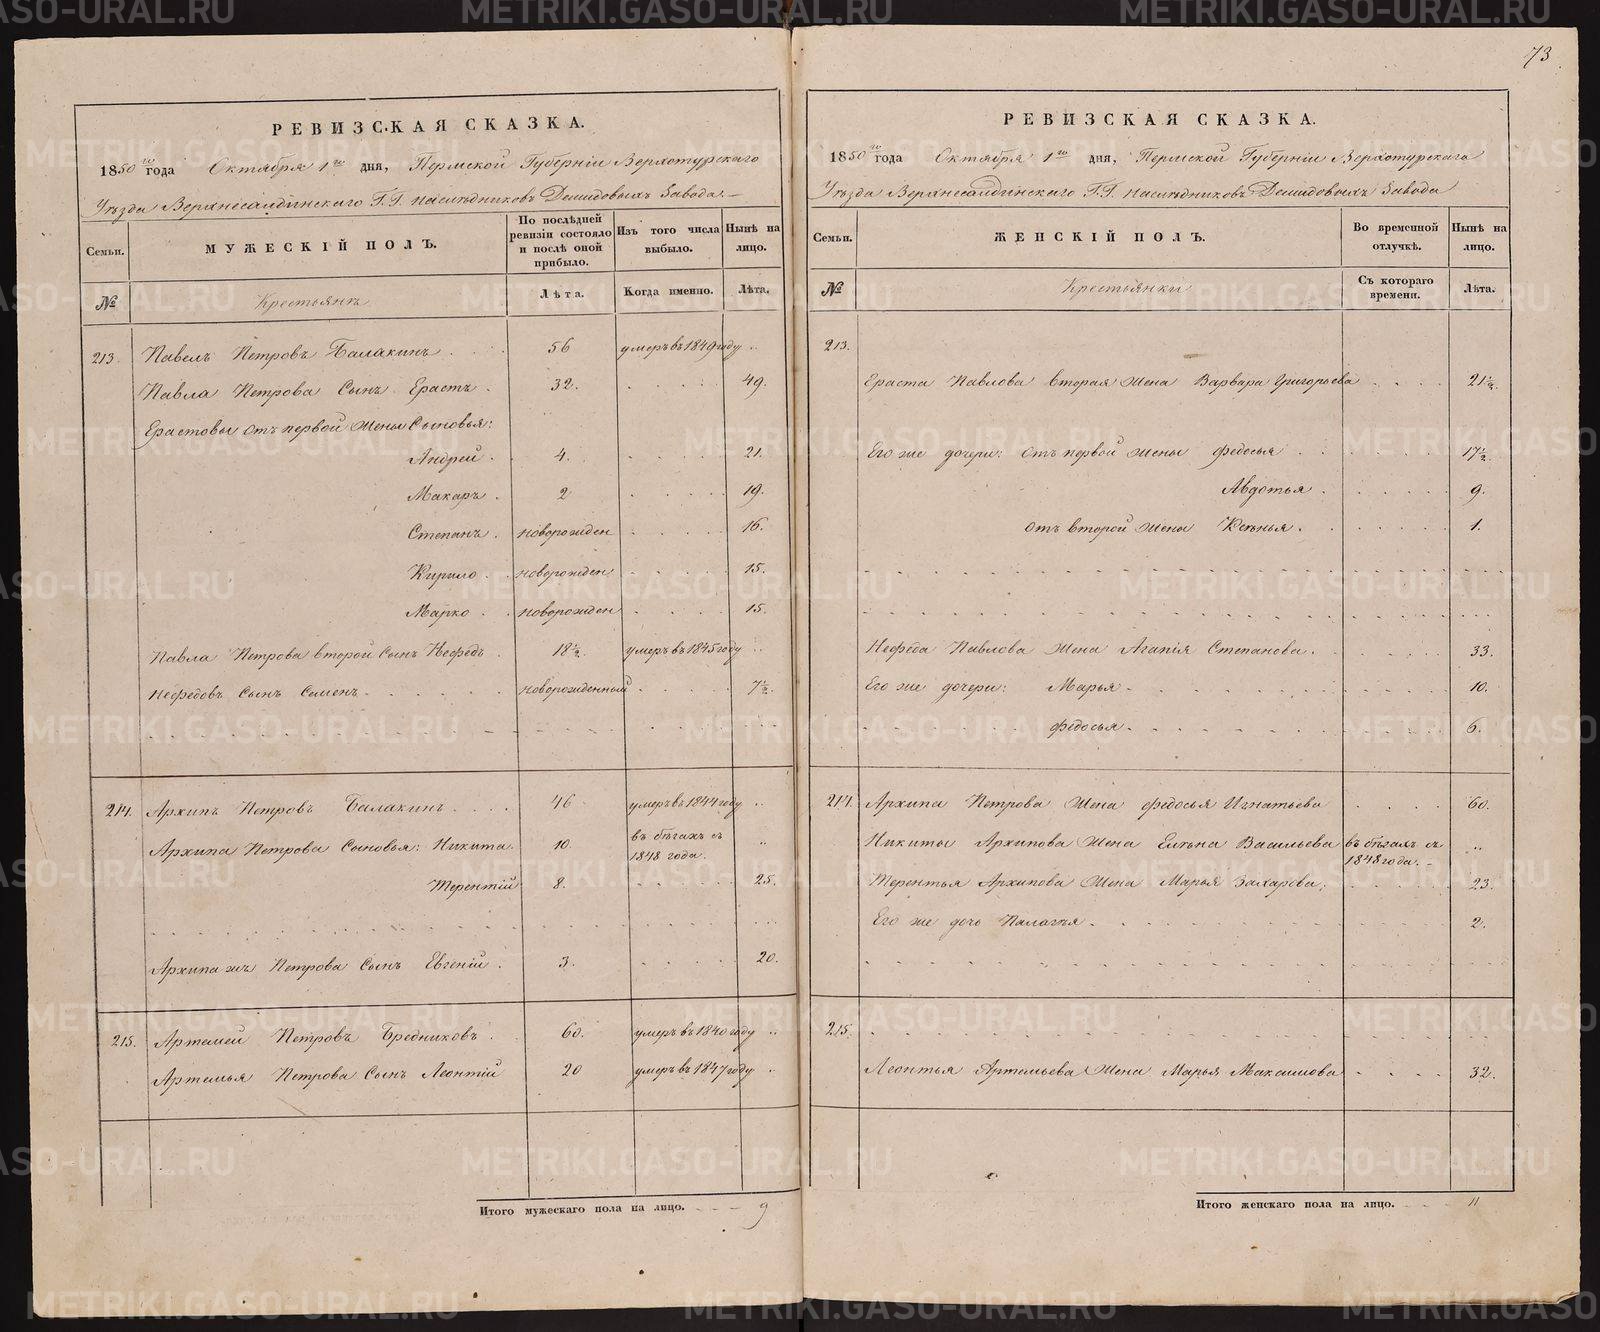 73
РЕВИЗСКАЯ СКАЗКА.
1850го года Октября 1го дня, Пермской Губерніи Верхотурскаго
Уѣзда Верхнесалдинскаго Г.Г. наслѣдниковъ Демидовыхъ Завода.
Семьи.
МУЖЕСКІЙ ПОЛЪ.
По послѣдней ревизіи состояло и послѣ оной прибыло.
Изъ того числа выбыло.
Нынѣ на лицо.
№
Крестьянъ
Лѣта.
Когда именно.
Лѣта.
213. Павелъ Петровъ Балакинъ 56 умеръ въ 1849 году
Павла Петрова Сынъ Ерастъ 32. 49.
Ерастовы отъ первой жены Сыновья:
Андрей 4. 21.
Макаръ 2 19.
Степанъ новорожден 16.
Кирило новорожден 15.
Марко новорожден 15.
Павла Петрова второй сынъ Нефедъ 18½ умеръ въ 1845 году
Нефедовъ сынъ Семенъ новорожденный 7½.
214. Архипъ Петровъ Балакинъ 46 умеръ въ 1844 году
Архипа Петрова Сыновья: Никита 10. въ бѣгахъ съ 1848 года.
Терентій 8. 25.
Архипа жъ Петрова Сынъ Евгеній 3. 20.
215. Артемей Петровъ Бредниковъ 60. умеръ въ 1840 году
Артемья Петрова Сынъ Леонтій 20 умеръ въ 1847 году
Итого мужескаго пола на лицо. 9
РЕВИЗСКАЯ СКАЗКА.
1850го года Октября 1го дня, Пермской Губерніи Верхотурскаго
Уѣзда Верхнесалдинскаго Г.Г. наслѣдниковъ Демидовыхъ Завода
Семьи.
ЖЕНСКІЙ ПОЛЪ.
Во временной отлучкѣ.
Нынѣ на лицо.
№
Крестьянки
Съ котораго времени.
Лѣта.
213.
Ераста Павлова вторая жена Варвара Григорьева 21½.
Его же дочери: отъ первой жены Федосья 17½.
Авдотья 9.
отъ второй жены Ксенья 1.
Нефеда Павлова жена Агапія Степанова 33.
Его же дочери: Марья 10.
Федосья 6.
214. Архипа Петрова жена Федосья Игнатьева 60.
Никиты Архипова жена Елена Васильева въ бѣгахъ съ 1848 года.
Терентья Архипова жена Марья Захарова 23.
Его же дочь Палагея 2.
215.
Леонтья Артемьева жена Марья Максимова 32.
Итого женскаго пола на лицо. 11
METRIKI.GASO-URAL.RU